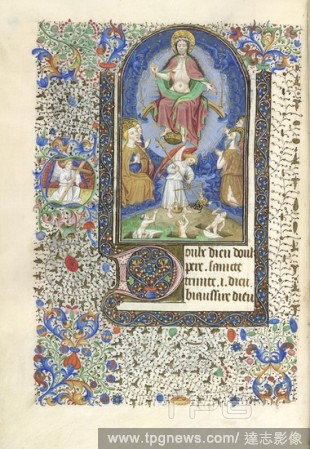 Doulz dieu doulz
pere. sainte
trinite. i. dieu
biau sire dieu
TPG
www.tpgnews.com/ 達志影像